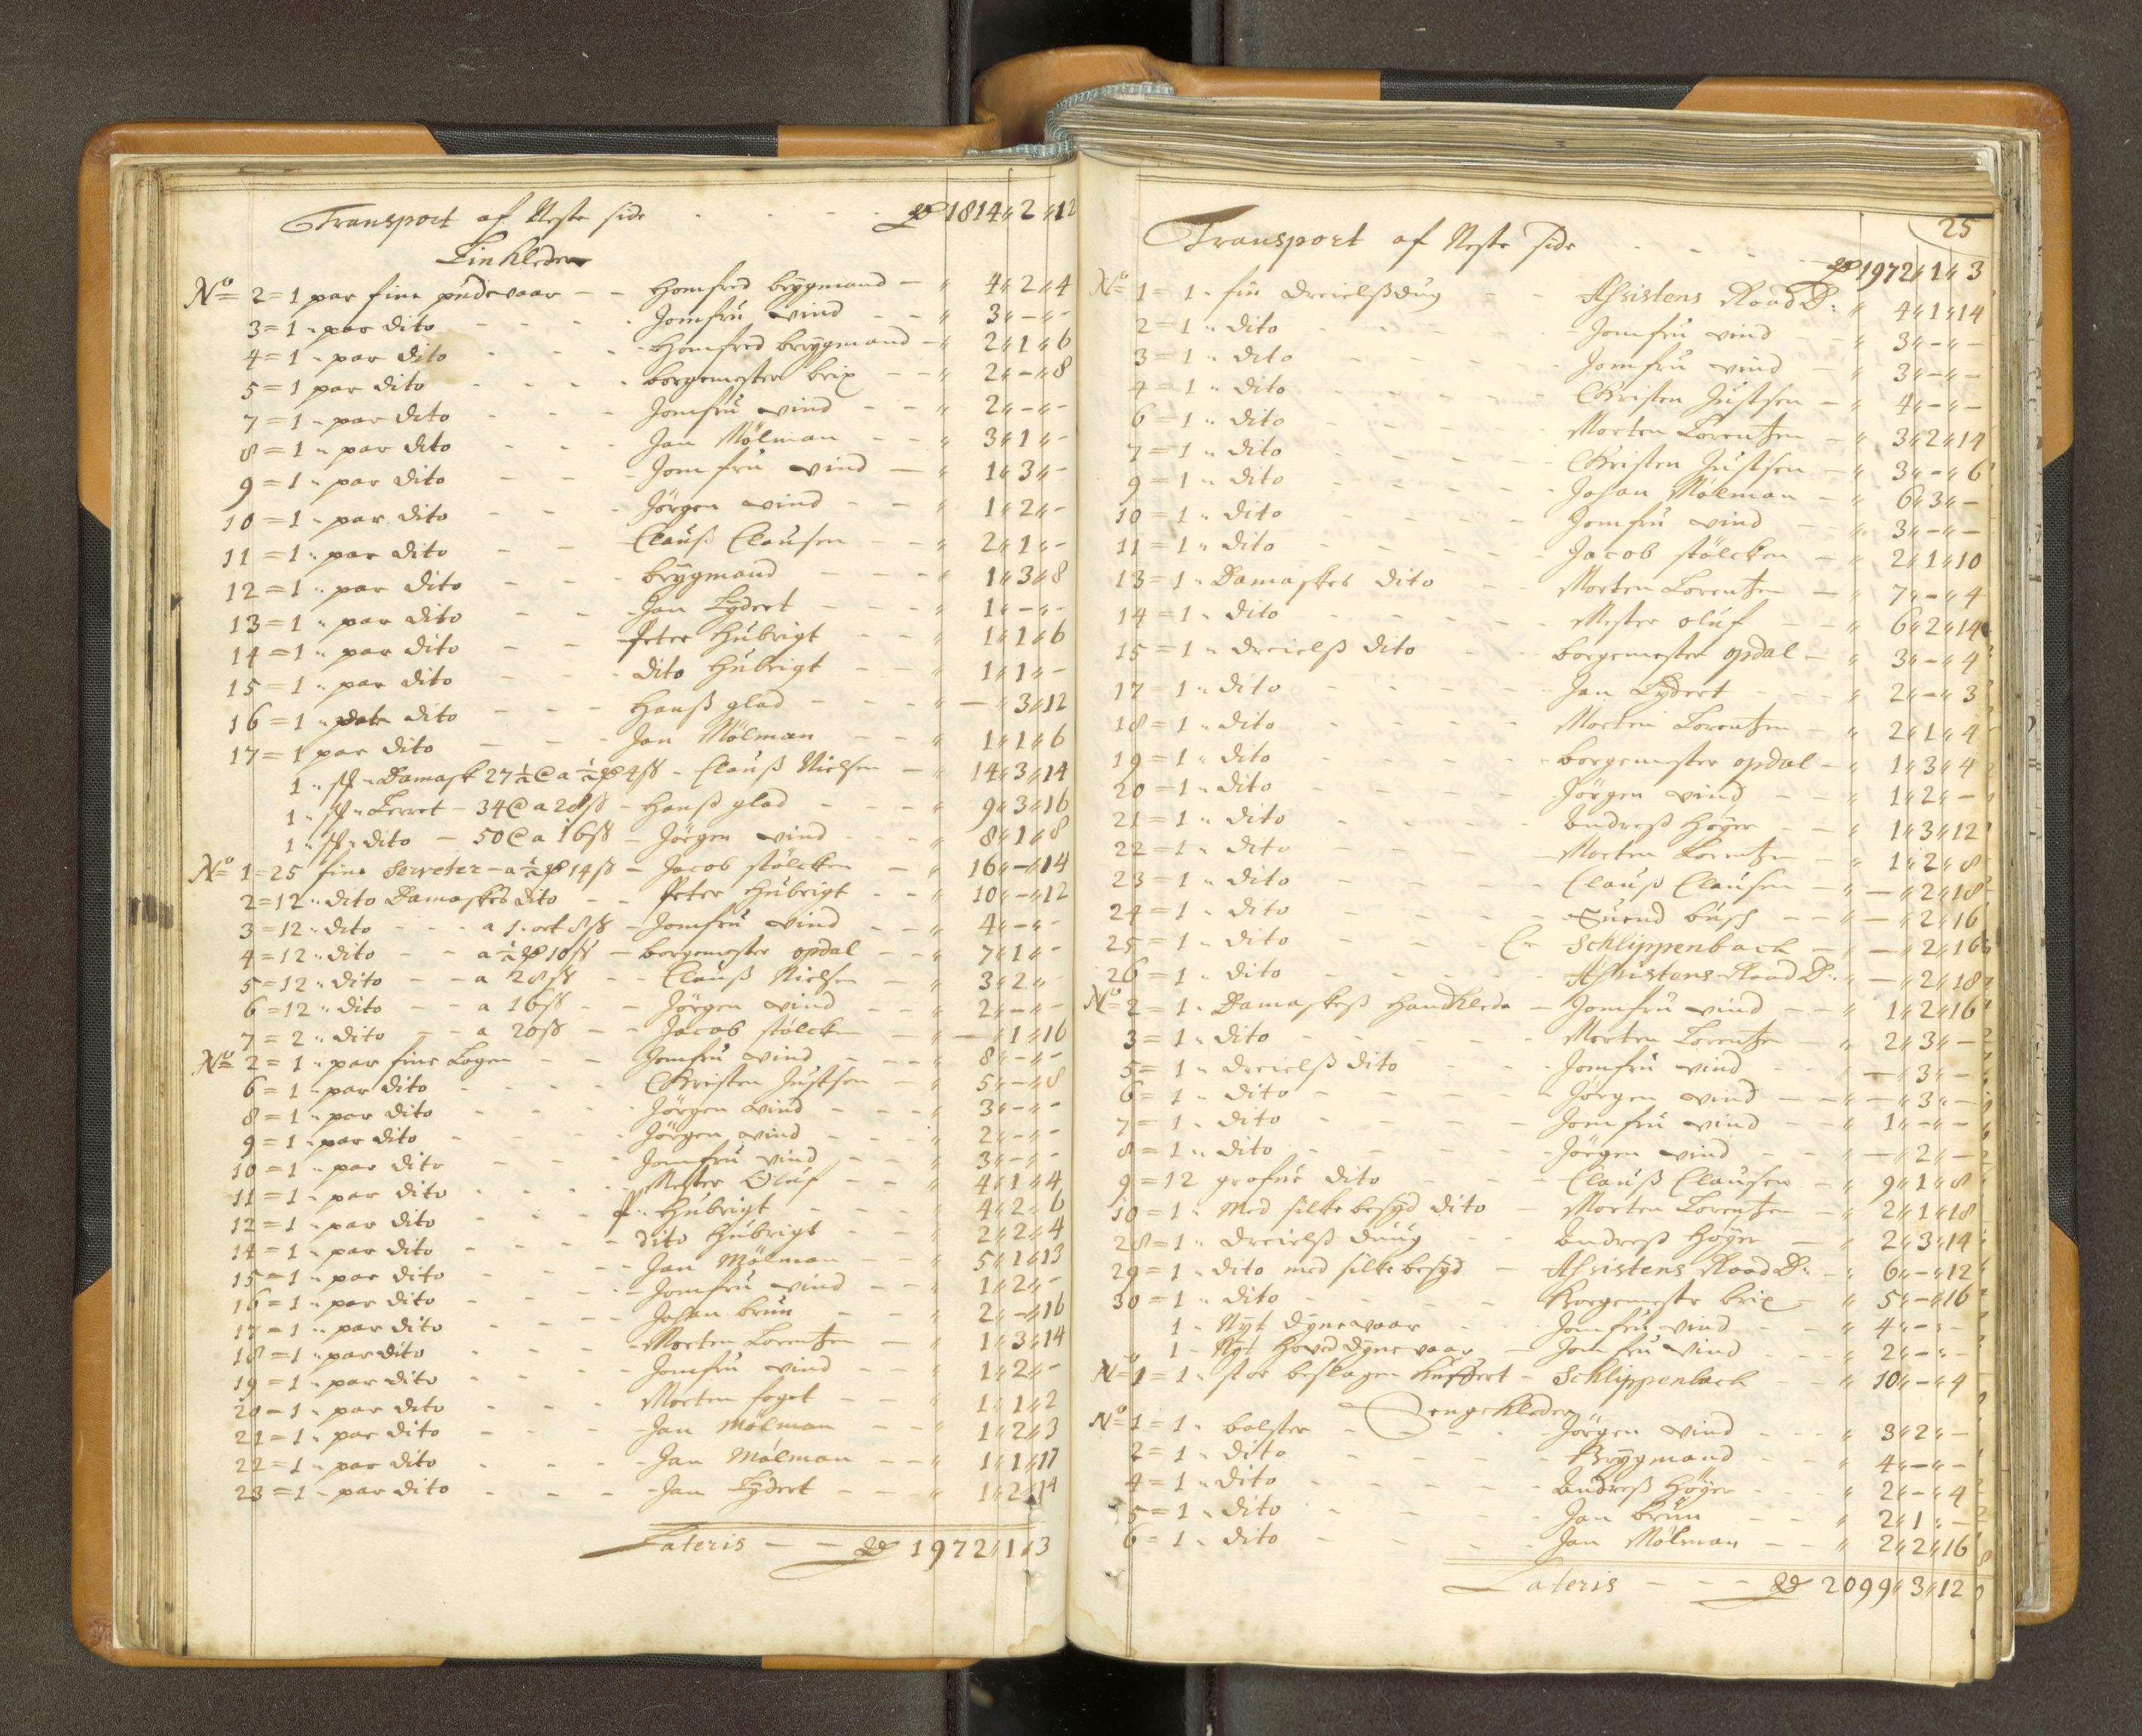 Transport af Neste side - - - - Rdr 1814 „ 2 „ 12
Linkleder
No 2 = 1 par fine pudevaar - - Homfred brygmand - „ 4 „ 2 „ 4
3 = 1 „ par dito - - - - Jomfru vind - - „ 3 „ - „ -
4 = 1 „ par dito - - - - Homfred brygmand - „ 2 „ 1 „ 6
5 = 1 par dito - - - - borgemester brix - - „ 2 „ - „ 8
7 = 1 „ par dito - - - Jomfru vind - - „ 2 „ - „ -
8 = 1 „ par dito - - - Jan Mölman - - „ 3 „ 1 „ -
9 = 1 „ par dito - - - Jomfru vind - „ 1 „ 3 „ -
10 = 1 „ par dito - - - Jörgen vind - - „ 1 „ 2 „ -
11 = 1 „ par dito - - - Clauß Clausen - - „ 2 „ 1 „ -
12 = 1 „ par dito - - - brygmand - - - „ 1 „ 3 „ 8
13 = 1 „ par dito - - - Jan Lydert - - - „ 1 „ - „ -
14 = 1 „ par dito - - - Peter Hubrigt - - „ 1 „ 1 „ 6
15 = 1 „ par dito - - - dito Hubrigt - - „ 1 „ 1 „ -
16 = 1 „ dito - - - Hanß glad - - - „ - „ 3 „ 12
17 = 1 par dito - - - Jan Mölman - - „ 1 „ 1 „ 6
1 „ st „ Damask 27 ½ @ a ½ Rdr 4 ß - Clauß Nielsen - „ 14 „ 3 „ 14
1 „ st „ Lerret - 34 @ a 28 ß - Hanß glad - - - „ 9 „ 3 „ 16
1 „ st „ dito - 50 @ a 16 ß - Jörgen vind - - - „ 8 „ 1 „ 8
No 1 = 25 fine Serveter - a ½ Rdr 14 ß - Jacob stölcken - „ 16 „ - „ 14
2 = 12 „ dito Damaskes dito - - Peter Hubrigt - - „ 10 „ - „ 12
3 = 12 „ dito - - - a 1 „ ort 8 ß - Jomfru vind - - „ 4 „ - „ -
4 = 12 „ dito - - a ½ Rdr 10 ß - borgemester opdal - - „ 7 „ 1 „ -
5 = 12 „ dito - - a 28 ß - - Clauß Nielsen - „ 3 „ 2 „ -
6 = 12 „ dito - - a 16 ß - - Jörgen vind - - „ 2 „ - „ -
7 = 2 „ dito - - a 20 ß - - Jacob stölcken - „ - „ 1 „ 16
No 2 = 1 „ par fine Lagen - - Jomfru vind - - - „ 8 „ - „ -
6 = 1 „ par dito - - - - Christen Justsen - „ 5 „ - „ 8
8 = 1 „ par dito - - - - Jörgen vind - - - „ 3 „ - „ -
9 = 1 „ par dito - - - - Jörgen vind - - - „ 2 „ - „ -
10 = 1 „ par dito - - - Jomfru vind - - „ 3 „ - „ -
11 = 1 „ par dito - - - - Mester Oluf - - „ 4 „ 1 „ 4
12 = 1 „ par dito - - - P „ Hubrigt - - - „ 4 „ 2 „ 6
14 = 1 „ par dito - - - - dito Hubrigt - - „ 2 „ 2 „ 4
15 = 1 „ par dito - - - - Jan Mölman - - - „ 5 „ 1 „ 13
16 = 1 „ par dito - - - - Jomfru vind - - „ 1 „ 2 „ -
17 = 1 „ par dito - - - - Johan brun - - „ 2 „ - „ 16
18 = 1 „ par dito - - - - Morten Lorentzen - „ 1 „ 3 „ 14
19 = 1 „ par dito - - - - Jomfru vind - - „ 1 „ 2 „ -
20 = 1 „ par dito - - - Morten foget - - „ 1 „ 1 „ 2
21 = 1 „ par dito - - - - Jan Mölman - - „ 1 „ 2 „ 3
22 = 1 „ par dito - - - - Jan Mölman - - „ 1 „ 1 „ 17
23 = 1 „ par dito - - - - Jan Lydert - - - „ 1 „ 2 „ 14
Lateris - - Rdr 1972 „ 1 „ 3
25
Transport af Neste side - - - - Rdr 1972 „ 1 „ 3
No 1 = 1 „ fin Dreielßdug - - Assistens Raad D: „ 4 „ 1 „ 14
2 = 1 „ dito - - - - - Jomfru vind - - „ 3 „ - „ -
3 = 1 „ dito - - - - - Jomfru vind - „ 3 „ - „ -
4 = 1 „ dito - - - - - Christen Justsen - „ 4 „ - „ -
6 = 1 „ dito - - - - - Morten Lorentzen - „ 3 „ 2 „ 14
7 = 1 „ dito - - - - - Christen Justsen - „ 3 „ - „ 6
9 = 1 „ dito - - - - - Johan Mölman - „ 6 „ 3 „ -
10 = 1 „ dito - - - - Jomfru vind - - „ 3 „ - „ -
11 = 1 „ dito - - - - - Jacob stölcken - „ 2 „ 1 „ 10
13 = 1 „ Damaskes dito - - Morten Lorentzen - „ 7 „ - „ 4
14 = 1 „ dito - - - - - Mester oluf - - „ 6 „ 2 „ 14
15 = 1 „ dreielß dito - - borgemester opdal - „ 3 „ - „ 4
17 = 1 „ dito - - - - - Jan Lydert - - - „ 2 „ - „ 3
18 = 1 „ dito - - - - Morten Lorentzen - „ 2 „ 1 „ 4
19 = 1 „ dito - - - - - borgemester opdal - „ 1 „ 3 „ 4
20 = 1 „ dito - - - - Jörgen vind - - „ 1 „ 2 „ -
21 = 1 „ dito - - - - - Andreß Höyer - - „ 1 „ 3 „ 12
22 = 1 „ dito - - - - - Morten Lorentzen - „ 1 „ 2 „ 8
23 = 1 „ dito - - - - - Clauß Clausen - „ - „ 2 „ 18
24 = 1 „ dito - - - - - Suend busch - - „ - „ 2 „ 16
25 = 1 „ dito - - - - Schlippenbach - „ - „ 2 „ 16
26 = 1 „ dito - - - - - Assistens Raad D: „ - „ 2 „ 18
No 2 = 1 „ Damaskeß Handklede - Jomfru vind - - „ 1 „ 2 „ 16
3 = 1 „ dito - - - - - Morten Lorentzen „ 2 „ 3 „ -
5 = 1 „ dreielß dito - - - Jomfru vind - - „ - „ 3 „ -
6 = 1 „ dito - - - - - Jörgen vind - - „ - „ 3 „ -
7 = 1 „ dito - - - - - Jomfru vind - - „ 1 „ - „ -
8 = 1 „ dito - - - - - Jörgen vind - - „ - „ 2 „ -
9 = 12 grofue dito - - - Clauß Clausen - „ 9 „ 1 „ 8
10 = 1 „ Med silke besyd dito - Morten Lorentzen - „ 2 „ 1 „ 18
28 = 1 „ dreielß duug - - Andreß Höyer - „ 2 „ 3 „ 14
29 = 1 „ dito med silke besyd - Assistens Raad D: - „ 6 „ - „ 12
30 = 1 „ dito - - - - - Borgemester brix - „ 5 „ - „ 16
1 „ Nyt dynevaar - - - Jomfru vind - - „ 4 „ - „ -
1 „ Nyt Hoved dynevaar - Jomfru vind - - - „ 2 „ - „ -
No 1 = 1 „ stor beslagen Kuffert - Schlippenbach - - „ 10 „ - „ 4
Sengekleder
No 1 = 1 „ bolster - - - - Jörgen vind - - - „ 3 „ 2 „ -
2 = 1 „ dito - - - - - Brygmand - - „ 4 „ - „ -
4 = 1 „ dito - - - - - Andreß Höyer - - - „ 2 „ - „ 4
5 = 1 „ dito - - - - - Jan brun - - „ 2 „ 1 „ -
6 = 1 „ dito - - - - - Jan Mölman - - „ 2 „ 2 „ 16
Lateris - - - Rdr 2099 „ 3 „ 12